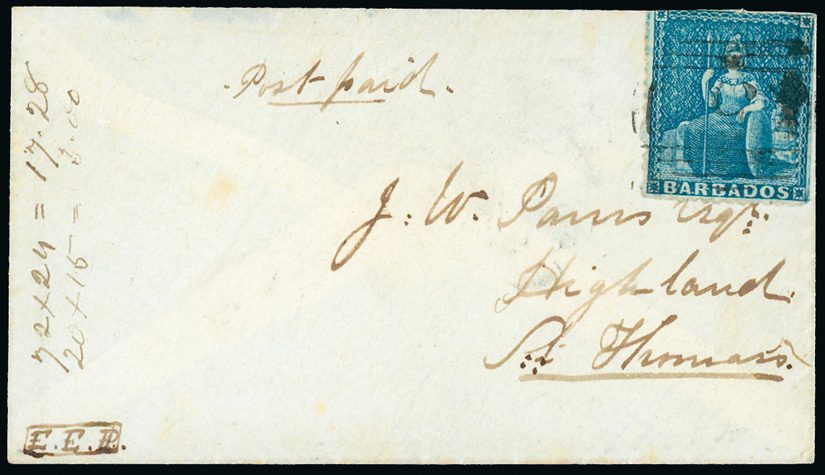 Post paid.
BARBADOS
J. W. Parris Esqr.
Highland
St. Thomas.
72 x 24 = 17.28
20 x 15 = 3.00
E. E. P.